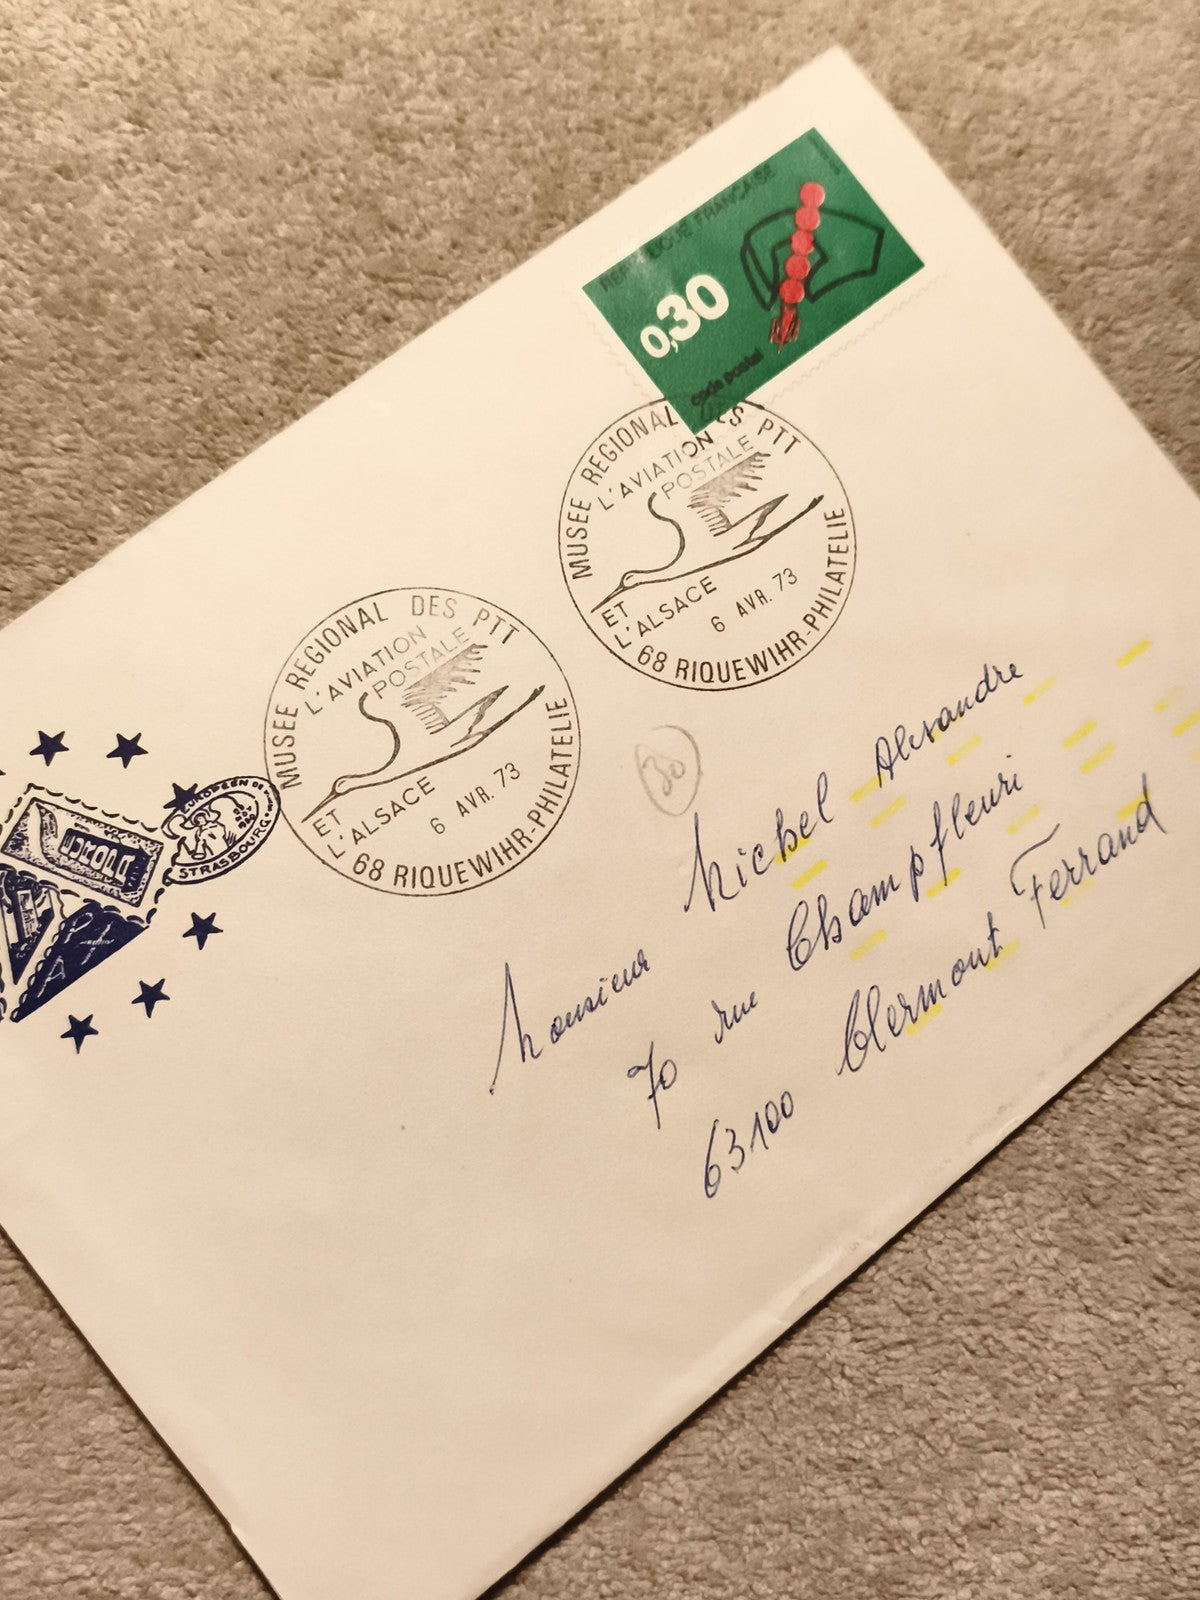 REPUBLIQUE FRANÇAISE
0,30
code postal
MUSEE REGIONAL DES PTT
L'AVIATION
POSTALE
ET
L'ALSACE
6 AVR. 73
68 RIQUEWIHR-PHILATELIE
MUSEE REGIONAL DES PTT
L'AVIATION
POSTALE
ET
L'ALSACE
6 AVR. 73
68 RIQUEWIHR-PHILATELIE
30
EUROPA
STRASBOURG
Monsieur Michel Alexandre
70 rue Champfleuri
63100 Clermont Ferrand